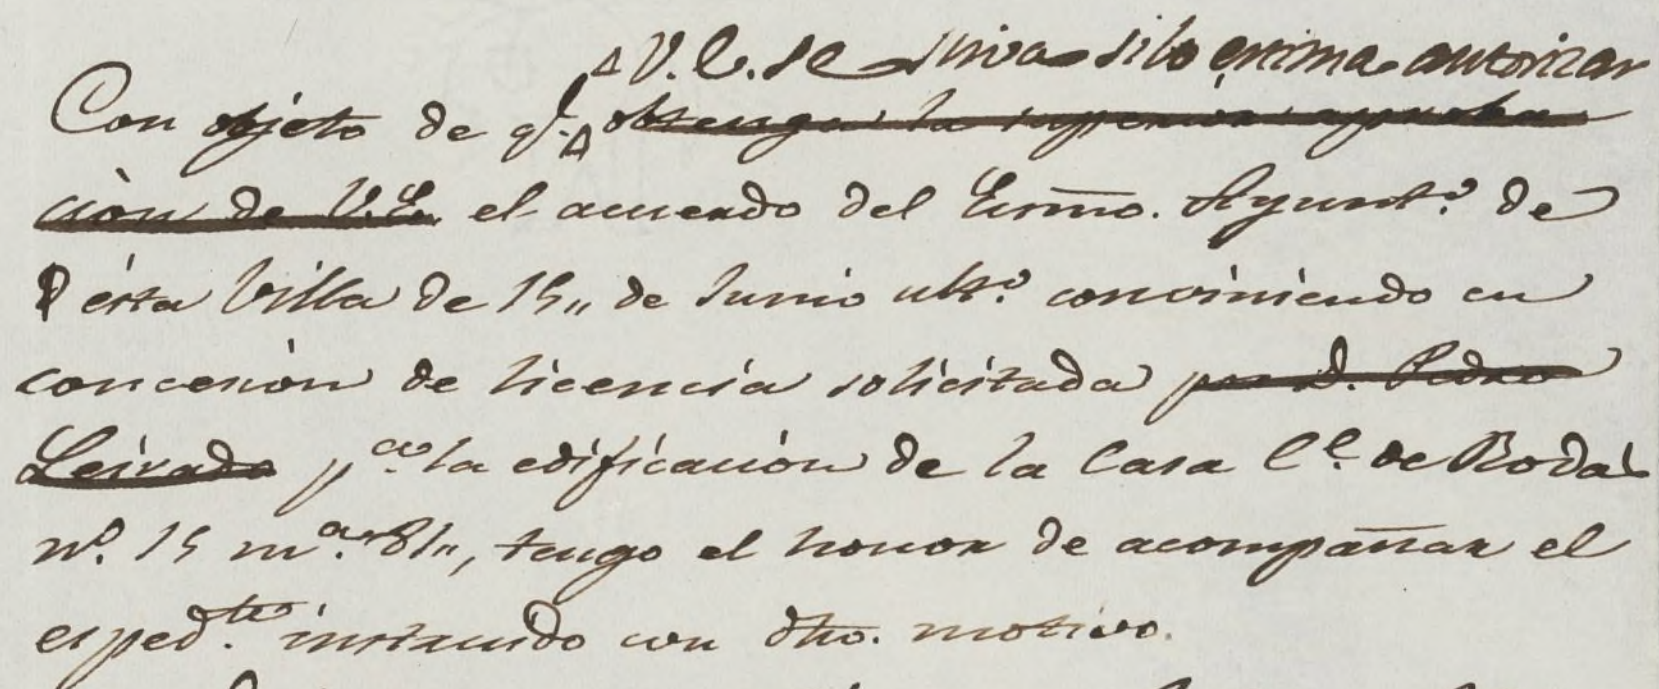 V. E. se sirva si lo estima autorizar
Con objeto de q.e obtenga la superior aproba
ción de V.E. el acuerdo del Exmo. Ayunt.o de
ésta Villa de 15,, de Junio ult.o conviniendo en
concesión de licencia solicitada por D. Pedro
p.a la edificación de la Casa C.e de Rodas
n.o 15 m.a 81,,, tengo el honor de acompañar el
esped.te instruido con dho. motivo.